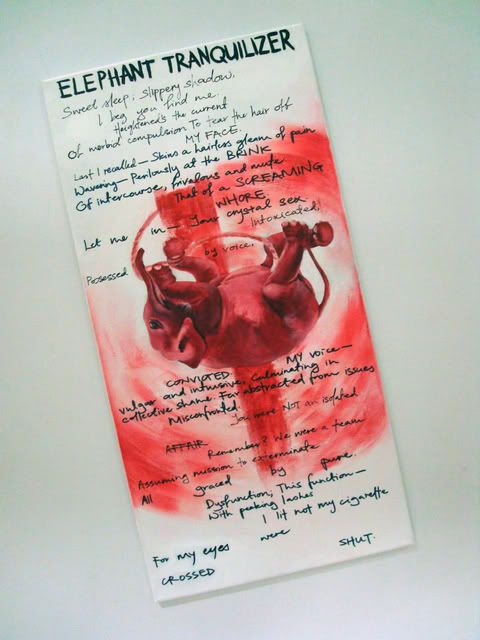 ELEPHANT TRANQUILIZER
Sweet sleep, slippery shadow,
I beg you find me.
Heightened's the current
Of morbid compulsion To tear the hair off
MY FACE.
Last I recalled— Skins a hairless gleam of pain
Wavering— Perilously at the BRINK
Of intercourse, frivolous and mute
That of a SCREAMING
WHORE.
Let me in— Your crystal sex
Intoxicated,
by voice,
Possessed
CONVICTED. MY voice—
vulgar and intrusive, culminating in
collective shame. For abstracted from issues
Misconfronted.
You were NOT an isolated
AFFAIR
Remember? We were a team
Assuming mission to exterminate
All graced by pure.
Dysfunction, This function—
With peaking lashes
I lit not my cigarette
For my eyes were
CROSSED SHUT.